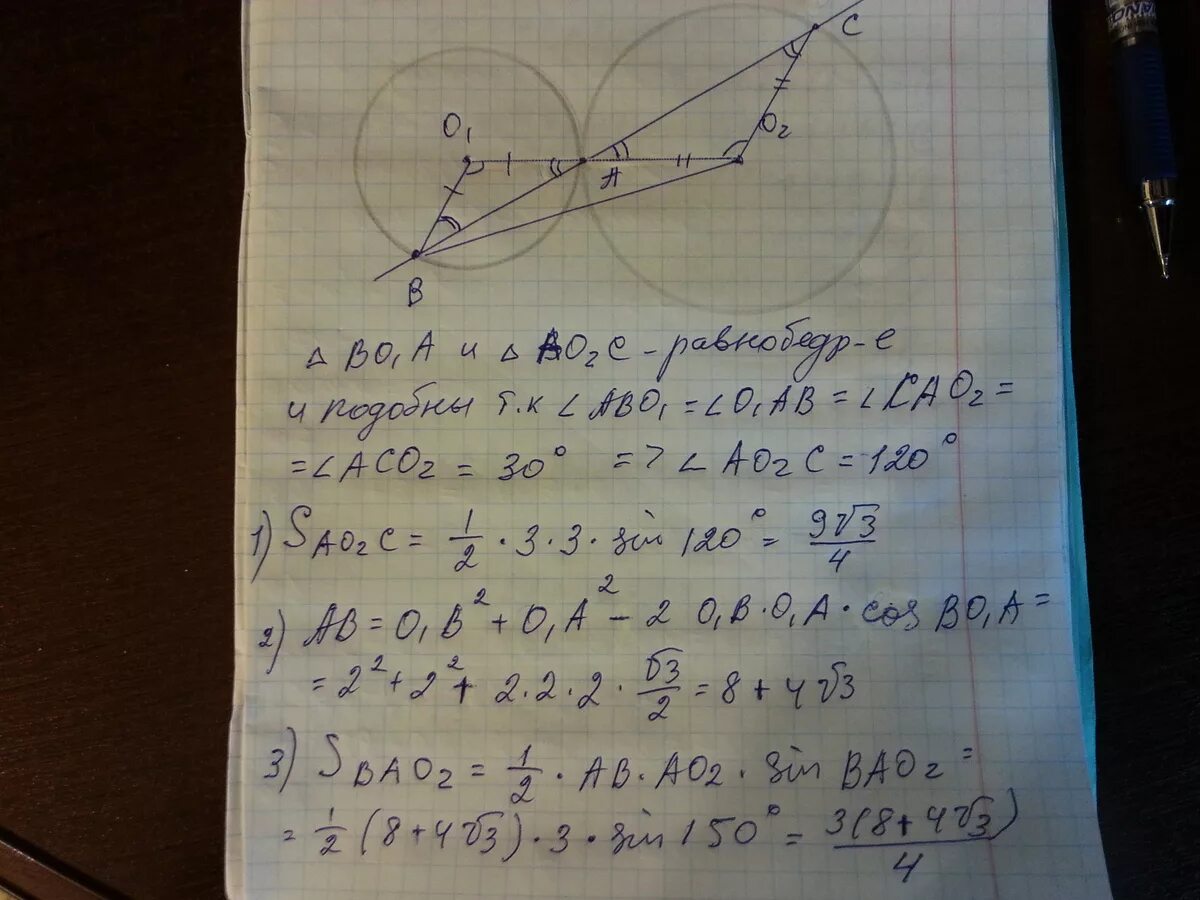 C
O₁
O₂
A
B
△ BO₁A и △ AO₂C - равнобедр-е
и подобны т.к ∠ABO₁ = ∠O₁AB = ∠CAO₂ =
= ∠ACO₂ = 30° => ∠AO₂C = 120°
1) S AO₂C = 1/2 · 3 · 3 · sin 120° = 9√3/4
2) AB = O₁B² + O₁A² - 2 O₁B · O₁A · cos BO₁A =
= 2² + 2² + 2 · 2 · 2 · √3/2 = 8 + 4√3
3) S BAO₂ = 1/2 · AB · AO₂ · sin BAO₂ =
= 1/2 (8 + 4√3) · 3 · sin 150° = 3(8 + 4√3)/4